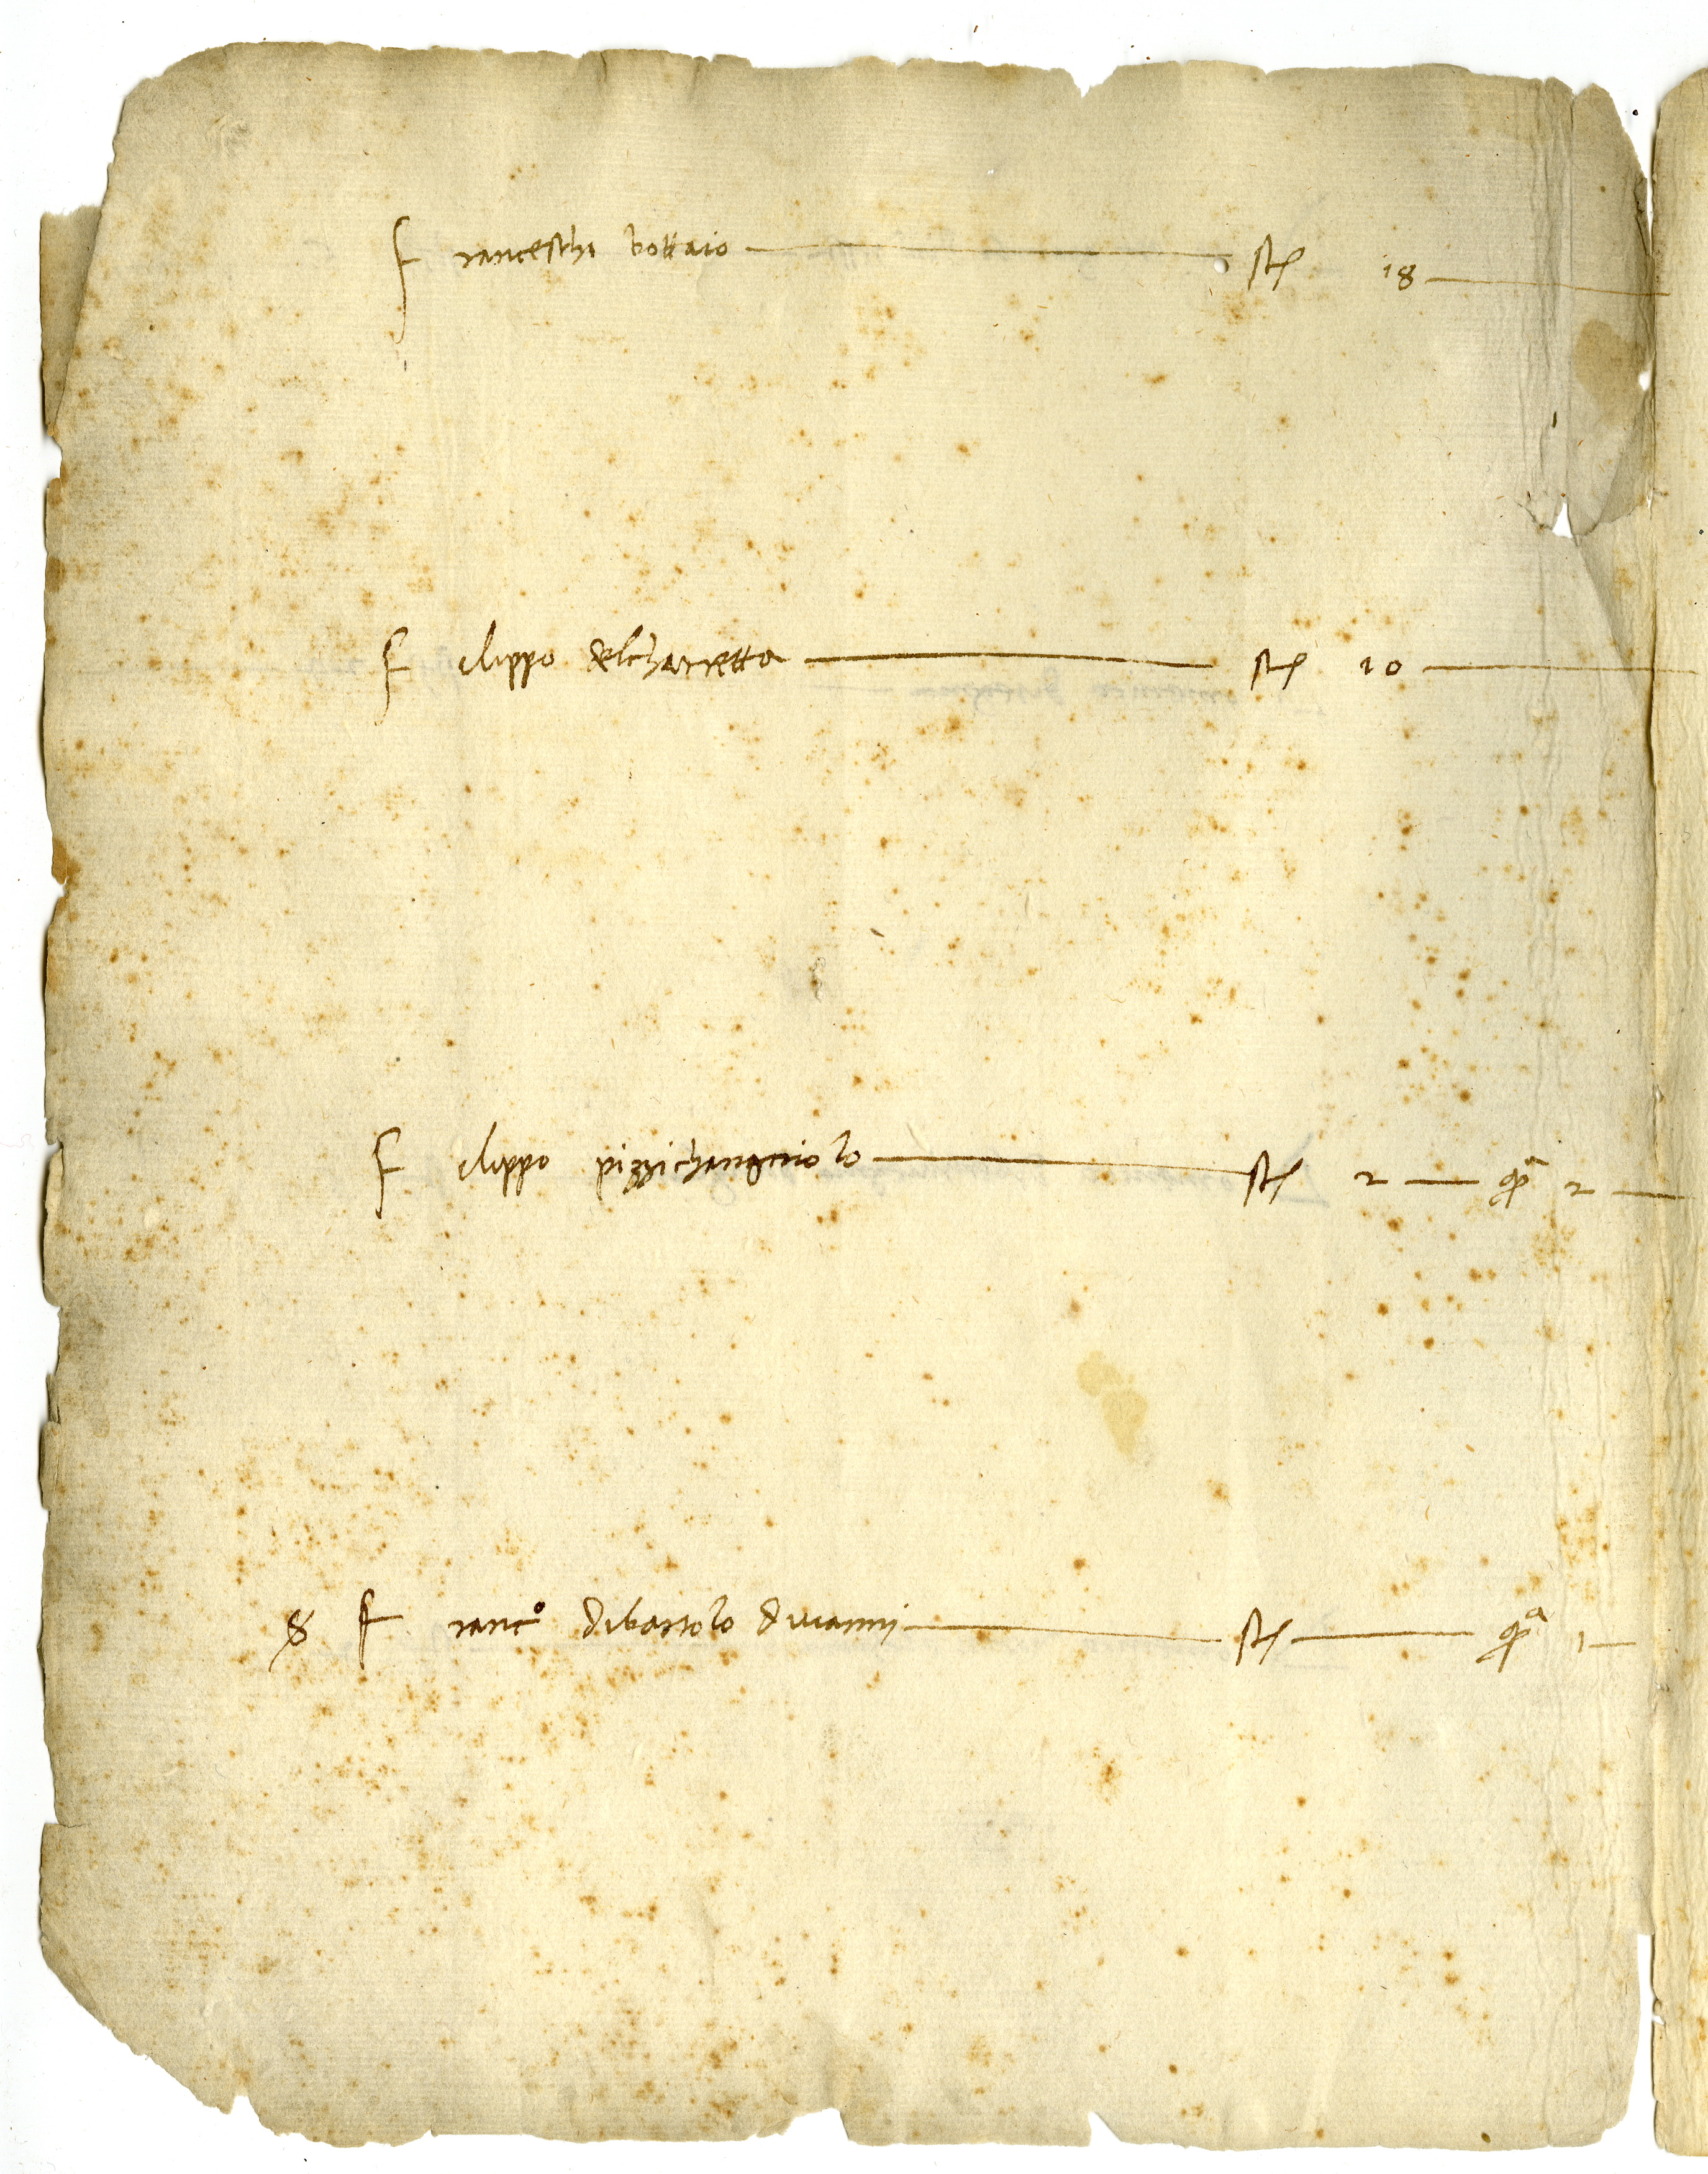 Franceschi bottaio — st 18 —
Filippo delcharretta — st 10 —
Filippo pizzichangniolo — st 2 — qrᵃ 2 —
Francº dibartolo divanni — st — qrᵃ 1 —